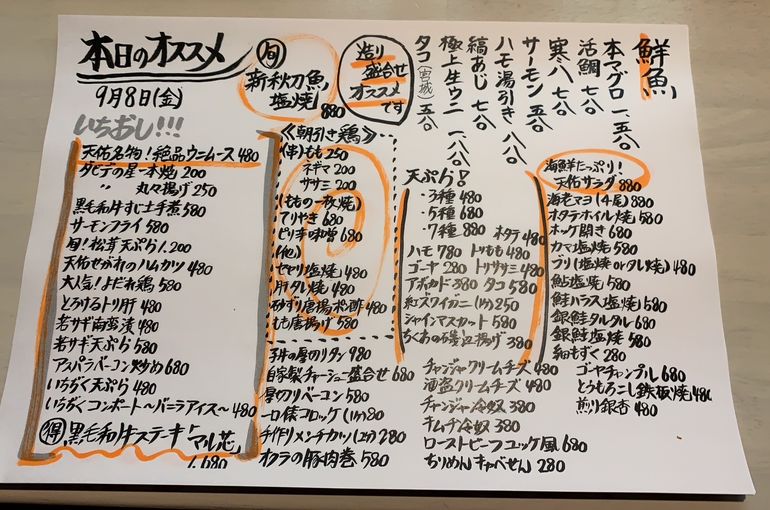 本日のオススメ
9月8日(金)
いちおし!!!
天佑名物!絶品ウニムース 480
ダビデの星一本焼 200
〃 丸々揚げ 250
黒毛和牛すじ土手煮 580
サーモンフライ 580
旬!松茸天ぷら 1.200
天佑せがれのハムカツ 480
大人気!よだれ鶏 580
とろけるトリ肝 480
若サギ南蛮漬 480
若サギ天ぷら 580
アスパラベーコン炒め 680
いちぢく天ぷら 480
いちぢくコンポート〜バニラアイス〜 480
得 黒毛和牛ステーキ「マル芯」
1.680
旬
新秋刀魚
塩焼 880
造り
盛合せ
オススメ
です
《朝引き鶏》
(串)もも 250
ネギマ 200
ササミ 200
(ももの一枚焼)
てりやき 680
ピリ辛味噌 680
(他)
セセリ塩焼 480
肝タレ焼 480
砂ずり唐揚ポン酢 480
もも唐揚げ 580
自家製チャーシュー盛合せ 680
厚切りベーコン 580
一口俵コロッケ(1ヶ) 80
手作りメンチカツ(2ヶ) 280
オクラの豚肉巻 580
鮮魚
本マグロ 一五〇〇
活鯛 七八〇
寒八 七八〇
サーモン 五八〇
ハモ湯引き 八八〇
縞あじ 七八〇
極上生ウニ 一、八八〇
タコ(宮城) 五八〇
天ぷら!
・3種 480
・5種 680
・7種 880
ホタテ 480
ハモ 780 トリもも 480
ゴーヤ 280 トリササミ 480
アボカド 380 タコ 580
紅ズワイガニ(1ヶ) 250
シャインマスカット 580
ちくわの磯辺揚げ 380
チャンジャクリームチーズ 480
酒盗クリームチーズ 480
チャンジャ冷奴 380
キムチ冷奴 380
ローストビーフユッケ風 680
ちりめんキャベせん 280
海鮮たっぷり!
天佑サラダ 880
海老マヨ(4尾) 880
ホタテホイル焼 580
ホッケ開き 680
カマ塩焼 580
ブリ(塩焼orタレ焼) 480
鮎塩焼 580
鮭ハラス塩焼 580
銀鮭タルタル 680
銀鮭塩焼 580
細もずく 280
ゴーヤチャンプル 680
とうもろこし鉄板焼 480
煎り銀杏 480